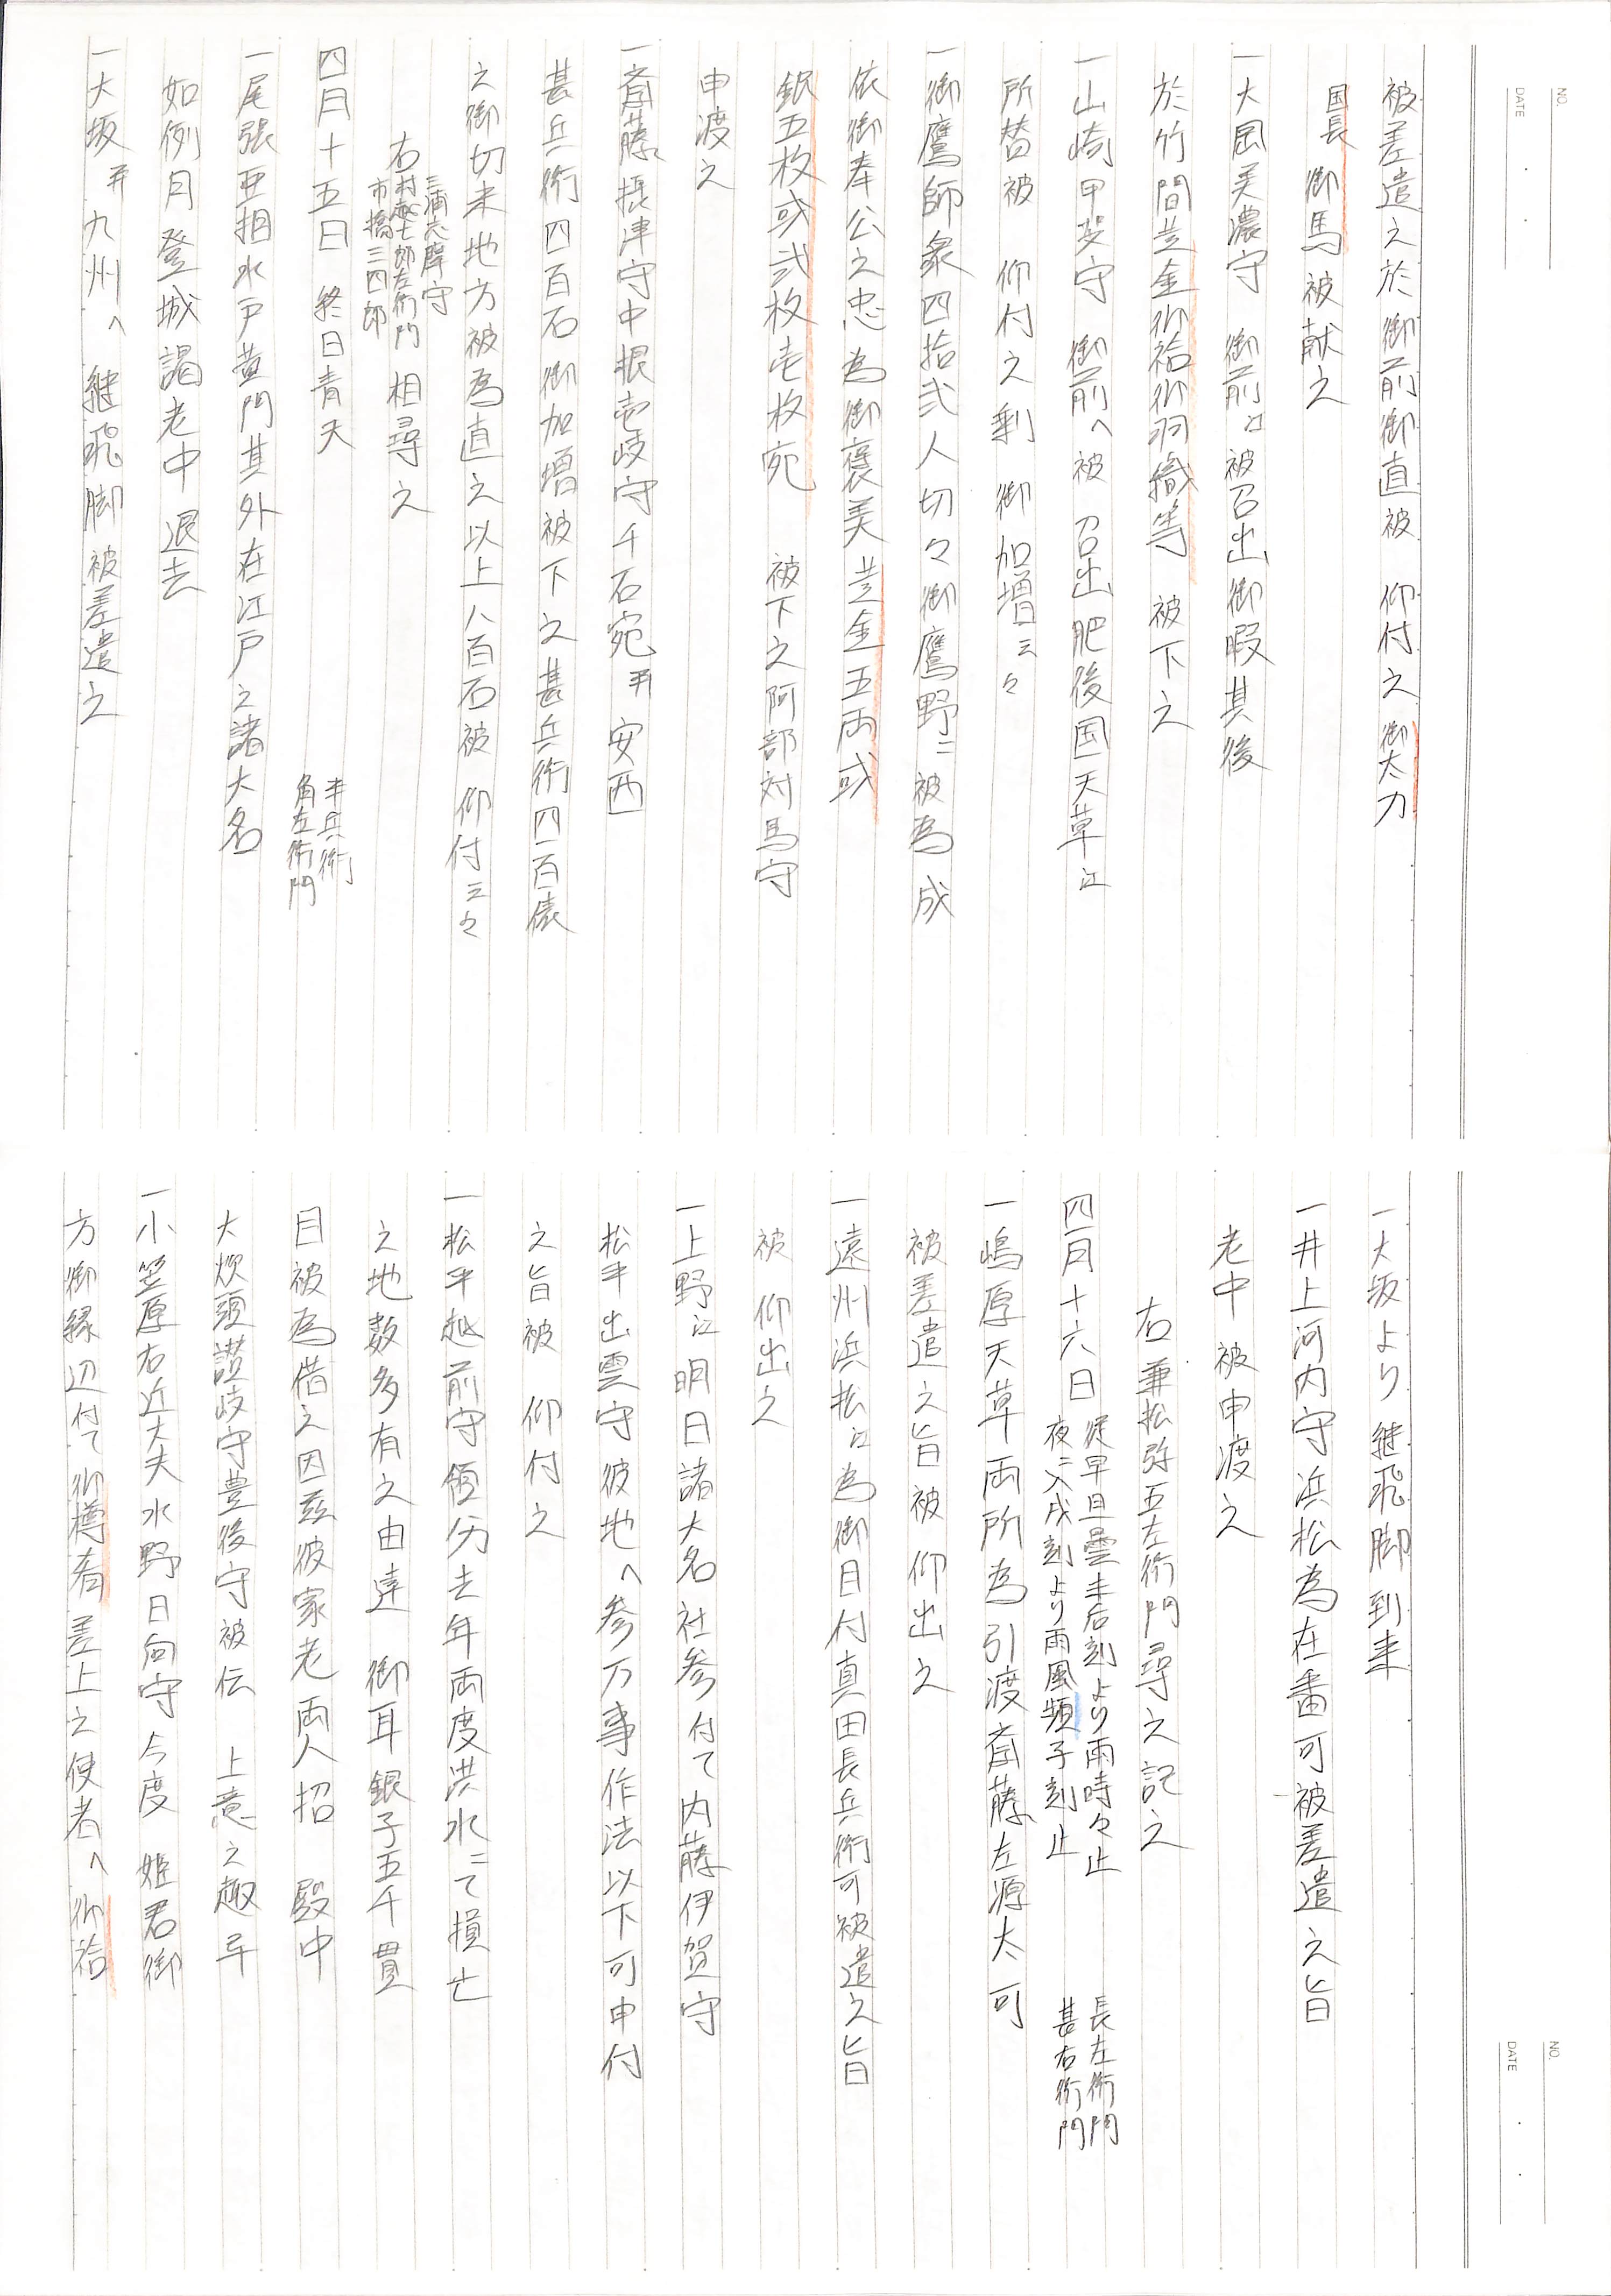 NO.
DATE
被差遣之於 御前御直被 仰付之 御太刀
国長 御馬被献之
一大岡美濃守 御前江被召出御暇其後
於竹間並金御袷御羽織等 被下之
一山崎甲斐守 御前へ被 召出肥後国天草江
所替被 仰付之剰 御加増云々
一御鷹師衆四拾弐人切々御鷹野ニ被為成
依御奉公之忠為御褒美 並金五両或
銀五枚或弐枚壱枚宛 被下之阿部対馬守
申渡之
一斎藤摂津守中根壱岐守千石宛并安西
甚兵衛四百石御加増被下之甚兵衛四百俵
之御切米地方被為直之以上八百石被 仰付云々
三浦志摩守
右村越七郎左衛門 相尋之
市橋三四郎
四月十五日 終日青天
半兵衛
角左衛門
一尾張亜相水戸黄門其外在江戸之諸大名
如例月登城謁老中退去
一大坂并九州へ 継飛脚被差遣之
NO.
DATE
一大坂より継飛脚到来
一井上河内守浜松為在番可被差遣之旨
老中被申渡之
右兼松弥五左衛門尋之記之
四月十六日 従早旦曇未后刻より雨時々止
夜ニ入戌刻より雨風頻子刻止
長左衛門
甚右衛門
一嶋原天草両所為引渡斎藤左源太可
被差遣之旨被仰出之
一遠州浜松江為御目付真田長兵衛可被遣之旨
被仰出之
一上野江明日諸大名社参付て内藤伊賀守
松平出雲守彼地へ参万事作法以下可申付
之旨被 仰付之
一松平越前守領分去年両度洪水ニて損亡
之地数多有之由達 御耳銀子五千貫
目被為借之因茲彼家老両人招 殿中
大炊頭讃岐守豊後守被伝 上意之趣畢
一小笠原右近大夫水野日向守今度 姫君御
方御縁辺付て御樽肴差上之使者へ御袷